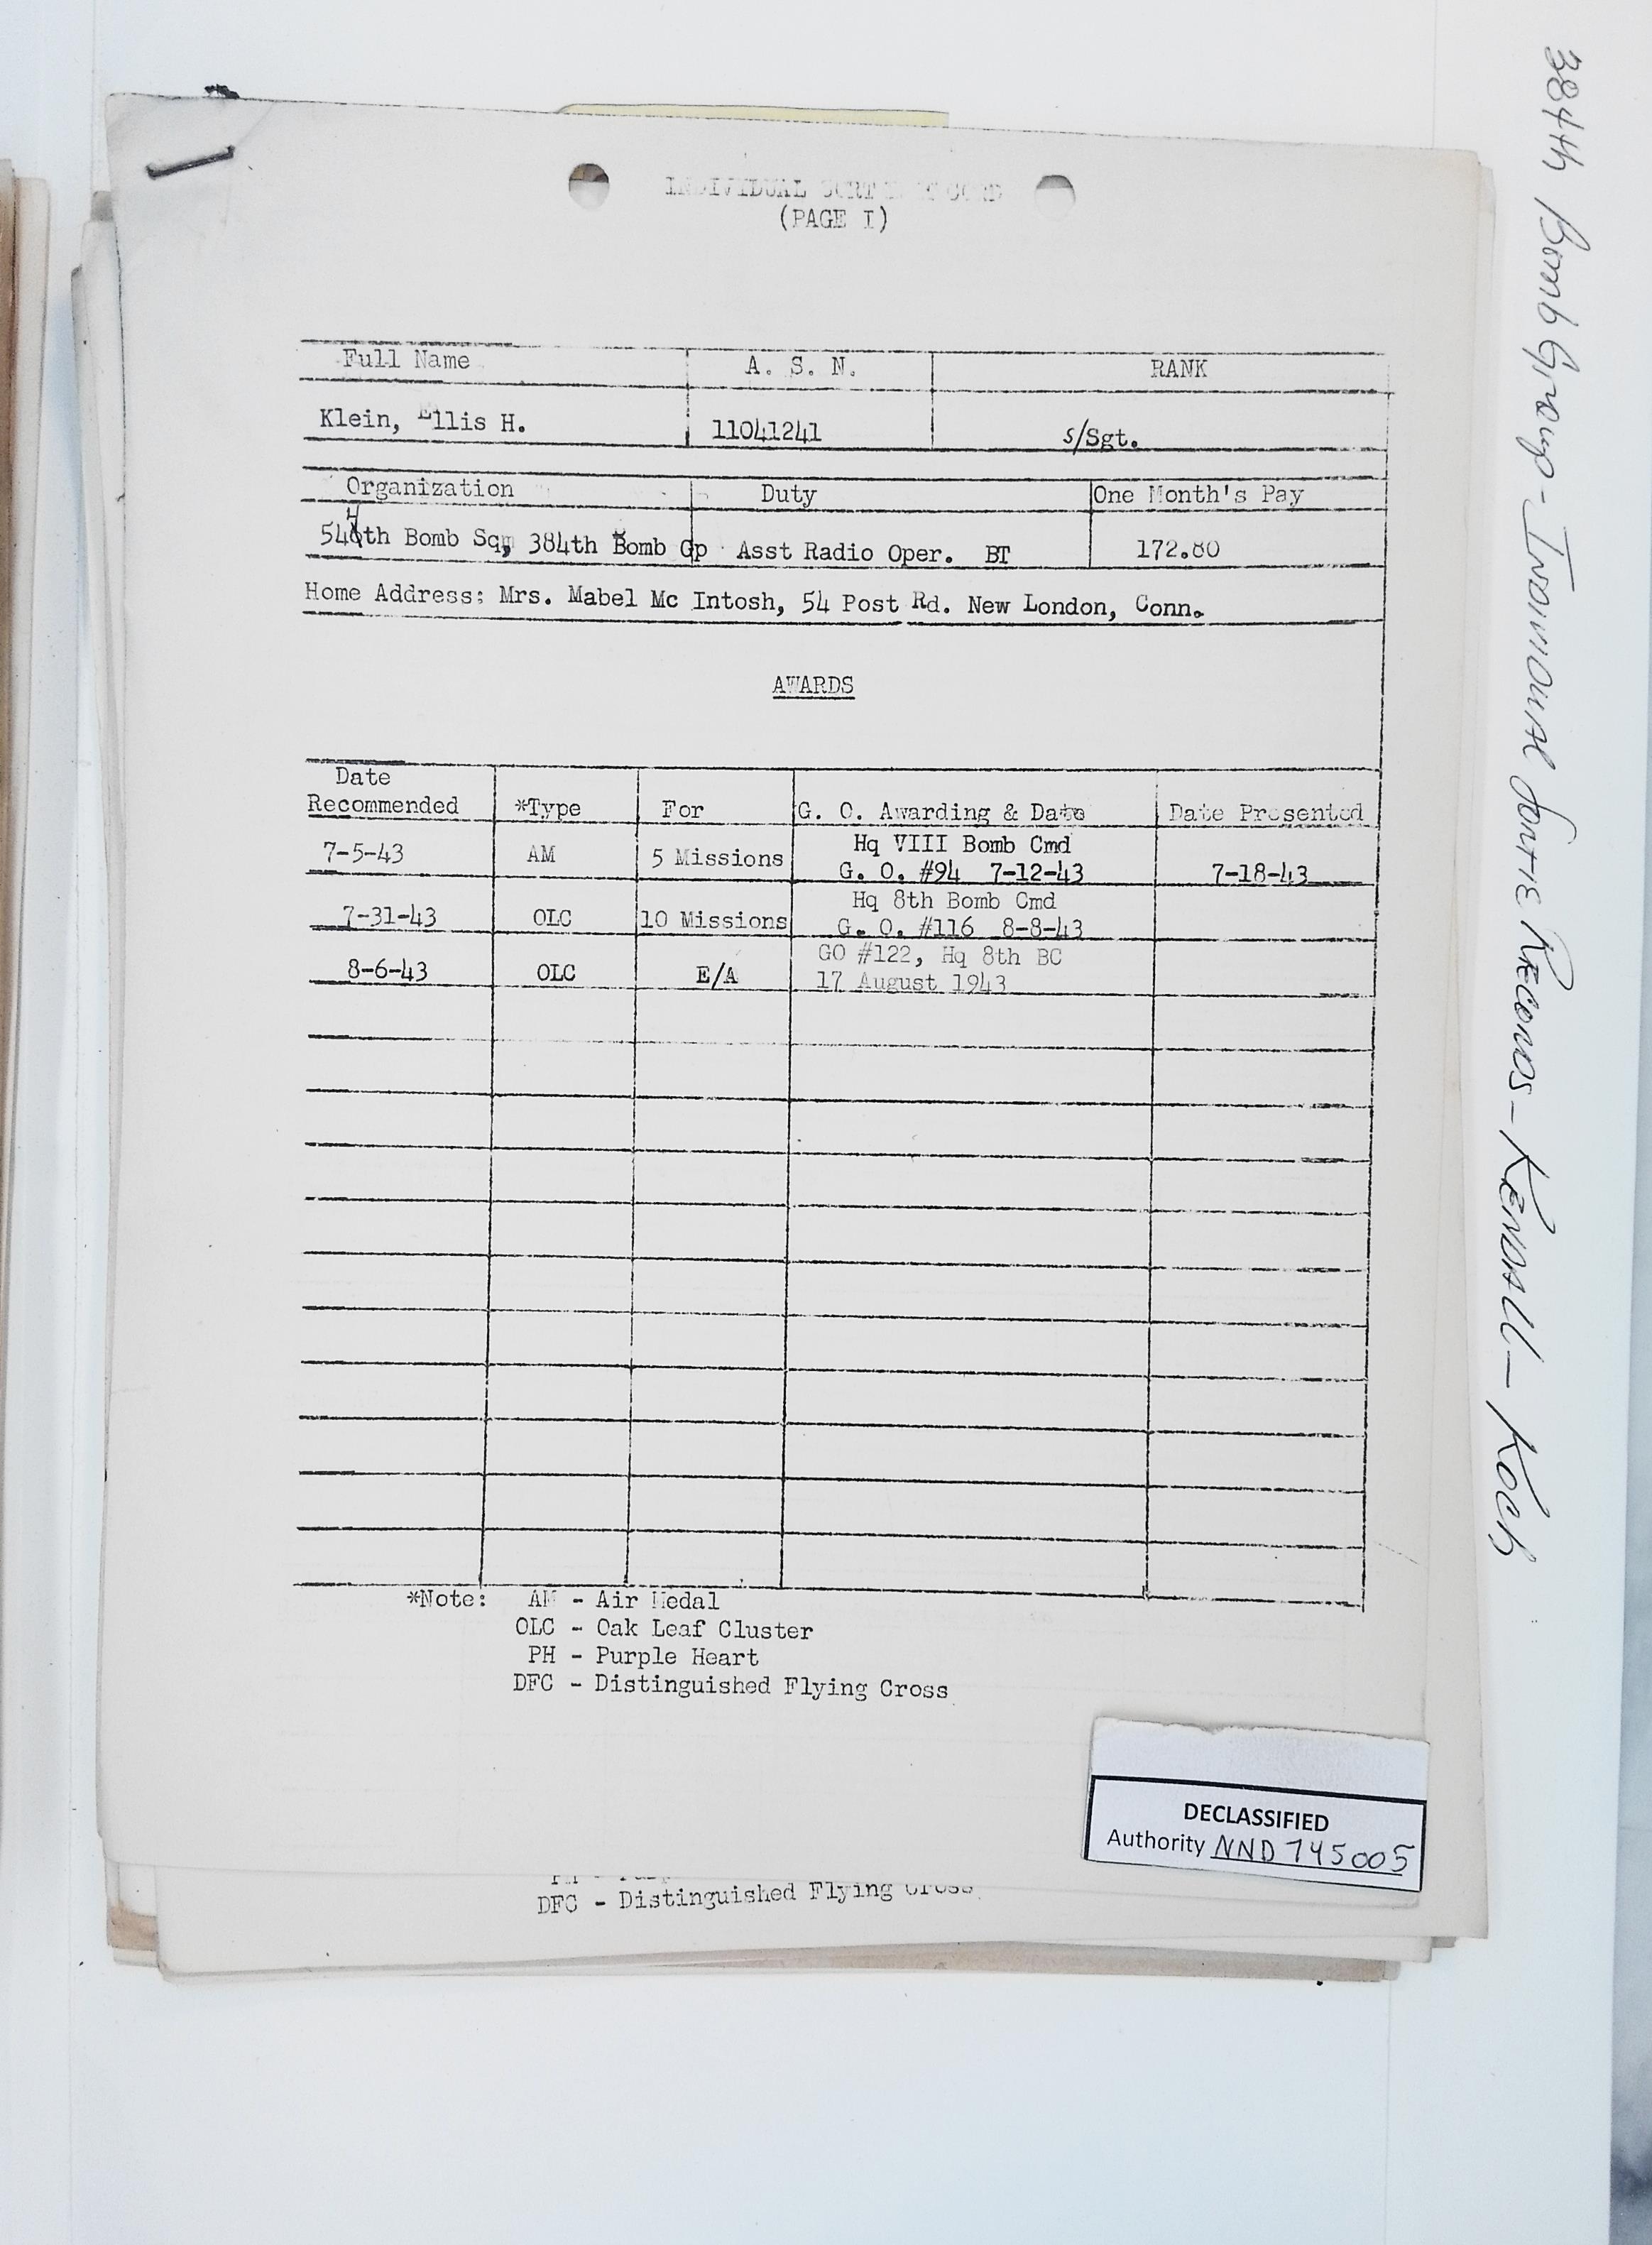 INDIVIDUAL SORTIE RECORD
(PAGE I)
Full Name A. S. N. RANK
Klein, Ellis H. 11041241 S/Sgt.
Organization Duty One Month's Pay
544th Bomb Sq, 384th Bomb Gp Asst Radio Oper. BT 172.80
Home Address: Mrs. Mabel Mc Intosh, 54 Post Rd. New London, Conn.
AWARDS
Date
Recommended *Type For G. O. Awarding & Date Date Presented
7-5-43 AM 5 Missions Hq VIII Bomb Cmd
G. O. #94 7-12-43 7-18-43
7-31-43 OLC 10 Missions Hq 8th Bomb Cmd
G. O. #116 8-8-43
8-6-43 OLC E/A GO #122, Hq 8th BC
17 August 1943
*Note: AM - Air Medal
OLC - Oak Leaf Cluster
PH - Purple Heart
DFC - Distinguished Flying Cross
DECLASSIFIED
Authority NND 745005
DFC - Distinguished Flying Cross
384th Bomb Group - Individual Sortie Records - Kendall - Koch